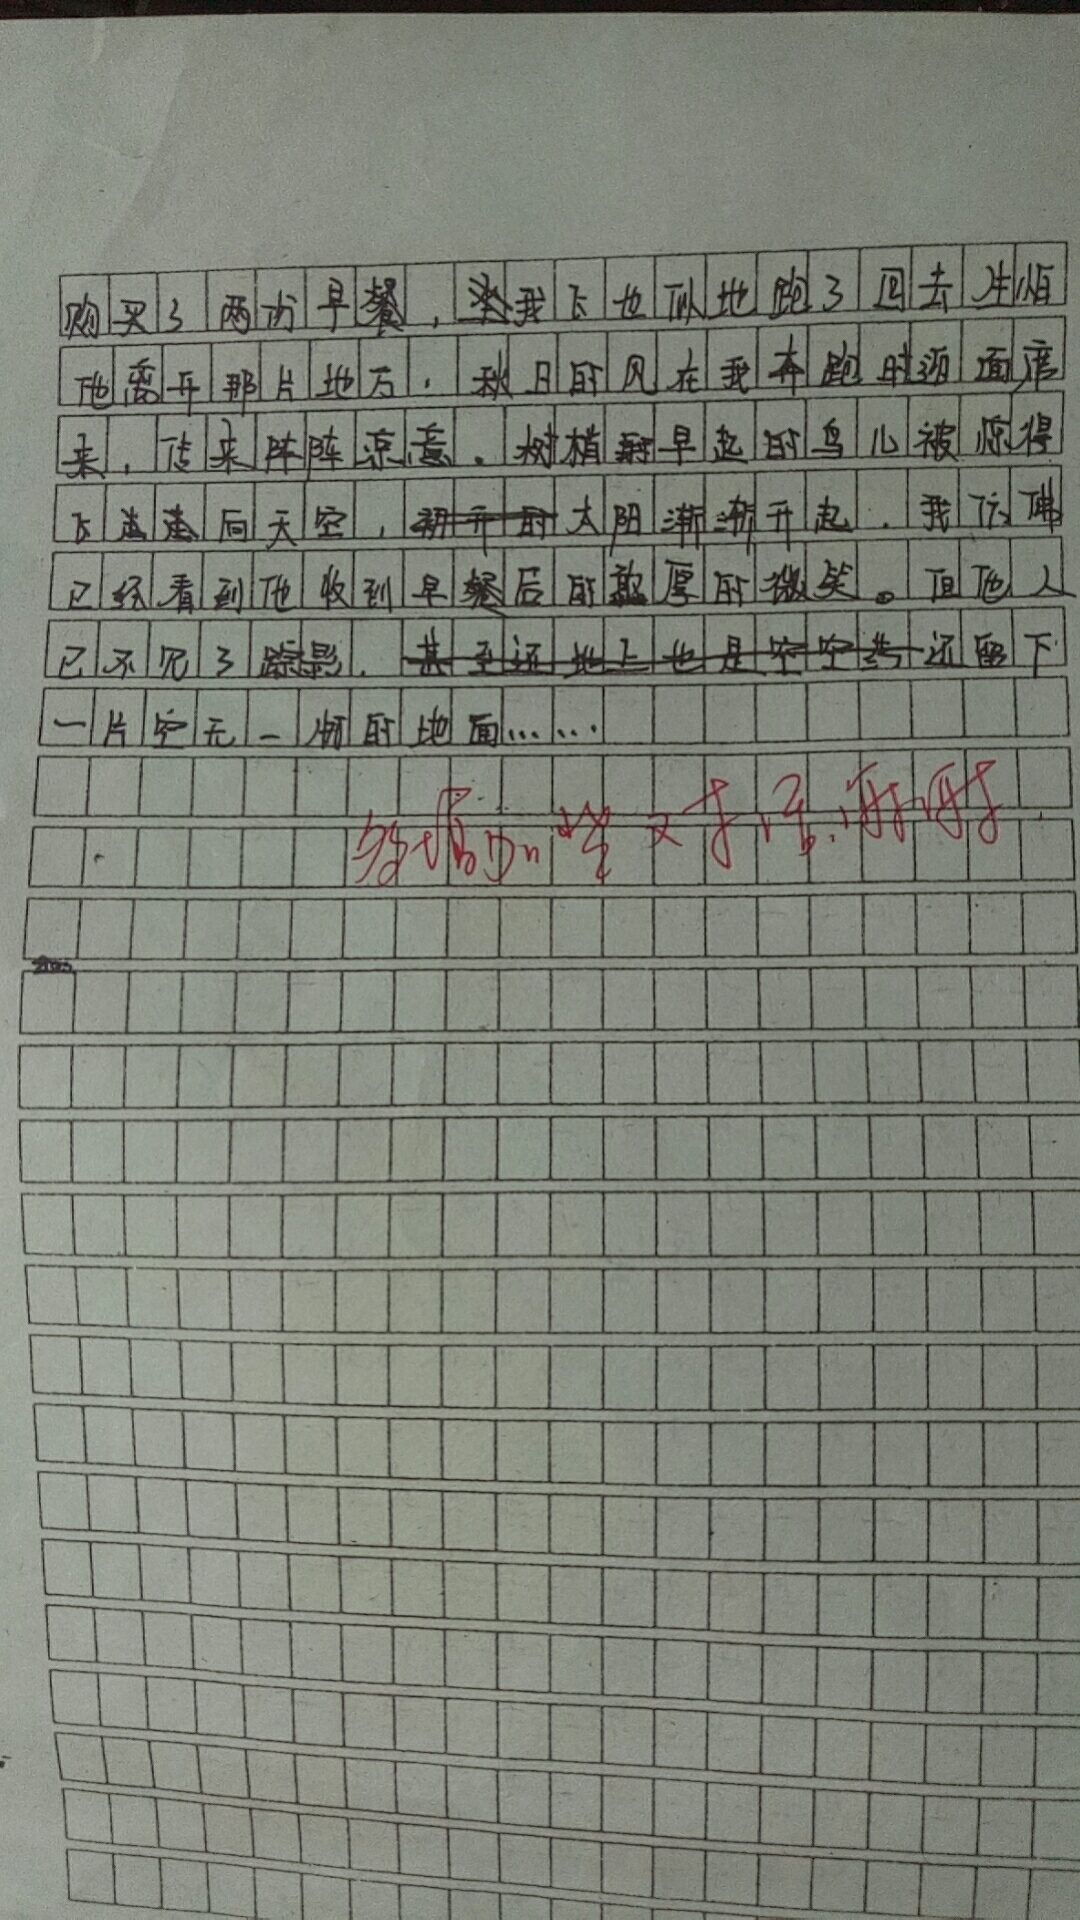 购买了两份早餐，我飞也似地跑了回去生怕
他离开那片地方。秋日的风在我奔跑时迎面席
来，传来阵阵凉意。树梢早起的鸟儿被惊得
飞向天空，太阳渐渐升起。我仿佛
已经看到他收到早餐后的憨厚的微笑。但他人
已不见了踪影。还留下
一片空无一物的地面……
多描加些对话